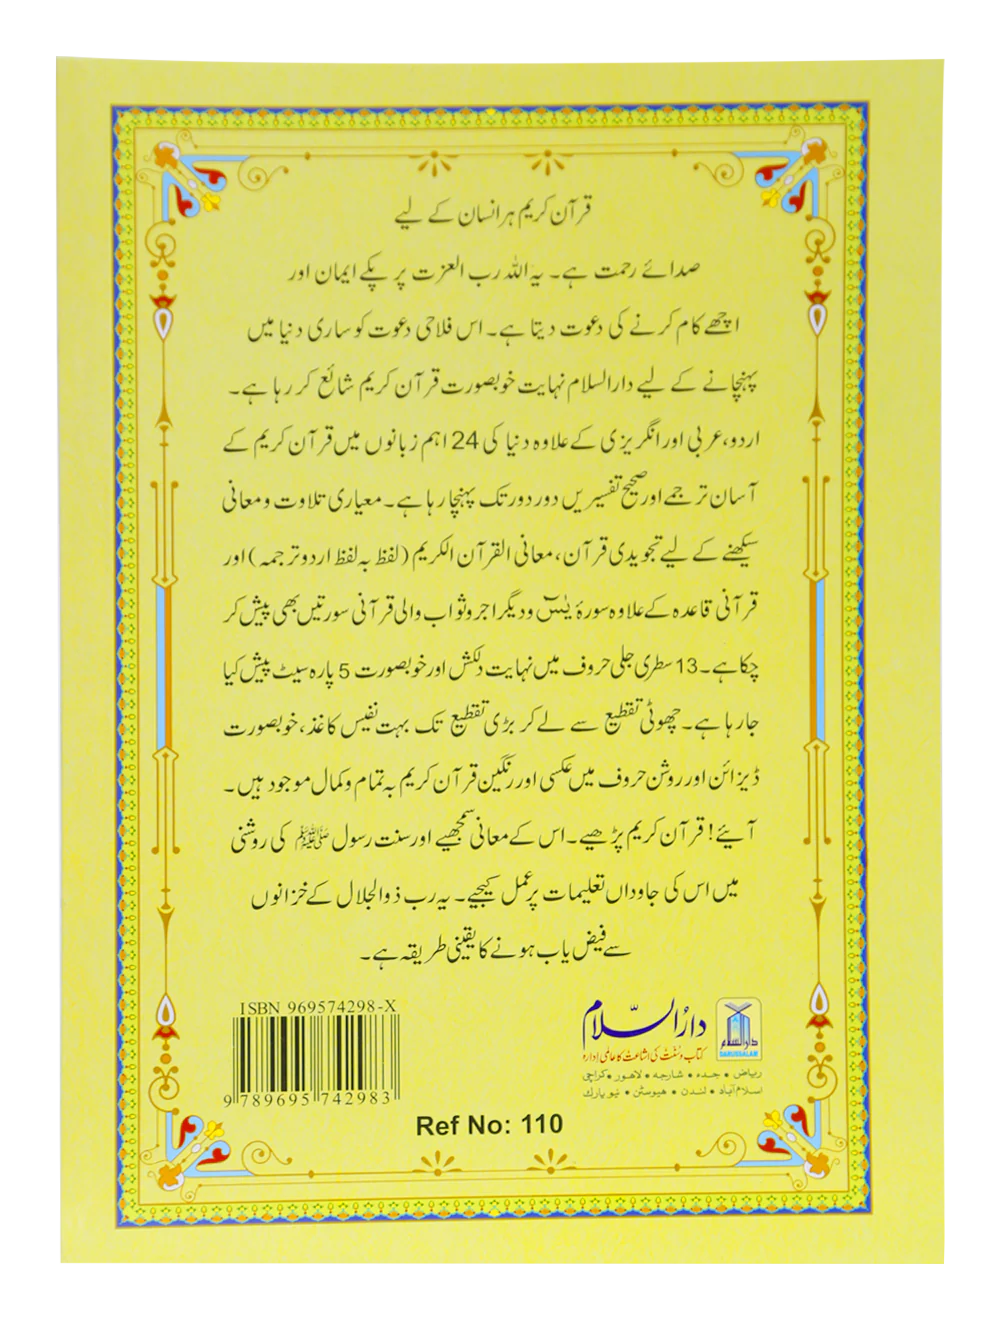 قرآن کریم ہر انسان کے لیے
صدائے رحمت ہے۔ یہ اللہ رب العزت پر پکے ایمان اور
اچھے کام کرنے کی دعوت دیتا ہے۔ اس فلاحی دعوت کو ساری دنیا میں
پہنچانے کے لیے دارالسلام نہایت خوبصورت قرآن کریم شائع کر رہا ہے۔
اردو، عربی اور انگریزی کے علاوہ دنیا کی 24 اہم زبانوں میں قرآن کریم کے
آسان ترجمے اور صحیح تفسیریں دور دور تک پہنچا رہا ہے۔ معیاری تلاوت و معانی
سیکھنے کے لیے تجویدی قرآن، معانی القرآن الکریم (لفظ بہ لفظ اردو ترجمہ) اور
قرآنی قاعدہ کے علاوہ سورۂ یٰسٓ و دیگر اجر و ثواب والی قرآنی سورتیں بھی پیش کر
چکا ہے۔ 13 سطری جلی حروف میں نہایت دلکش اور خوبصورت 5 پارہ سیٹ پیش کیا
جا رہا ہے۔ چھوٹی تقطیع سے لے کر بڑی تقطیع تک بہت نفیس کاغذ، خوبصورت
ڈیزائن اور روشن حروف میں عکسی اور رنگین قرآن کریم بہ تمام و کمال موجود ہیں۔
آیئے! قرآن کریم پڑھیے۔ اس کے معانی سمجھیے اور سنت رسول ﷺ کی روشنی
میں اس کی جاوداں تعلیمات پر عمل کیجیے۔ یہ رب ذوالجلال کے خزانوں
سے فیض یاب ہونے کا یقینی طریقہ ہے۔
دارُالسّلام
کتاب و سُنّت کی اشاعت کا عالمی ادارہ
دارالسلام
DARUSSALAM
ریاض • جدہ • شارجہ • لاہور • کراچی
اسلام آباد • لندن • ہیوسٹن • نیو یارک
ISBN 969574298-X
9 789695 742983
Ref No: 110